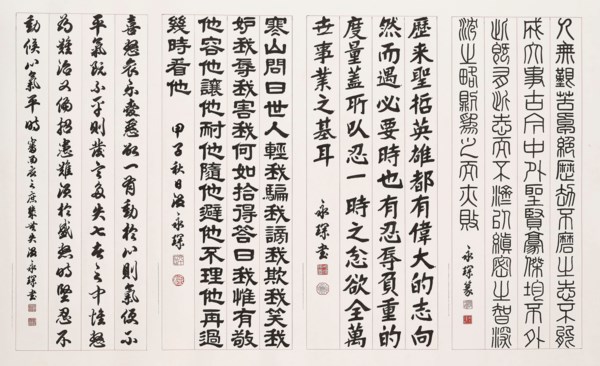 人無艱苦卓絕歷劫不磨之志不能
成大事古今中外聖賢豪傑均不外
此既多此志而不濟以縝密之智深
沈之略斯為之而亦敗
永琛篆
歷來聖哲英雄都有偉大的志向
然而遇必要時也有忍辱負重的
度量蓋所以忍一時之忿欲全萬
世事業之基耳
永琛書
寒山問曰世人輕我騙我謗我欺我笑我
妒我辱我害我何如拾得答曰我惟有敬
他容他讓他耐他隨他避他不理他再過
幾時看他
甲子秋日汲永琛
喜怒哀樂愛惡欲一有動於心則氣便不
平氣既不平則發言多失七者之中惟怒
為難治又偏招患難須於盛怒時堅忍不
動候心氣平時審而應之庶幾無失汲永琛書